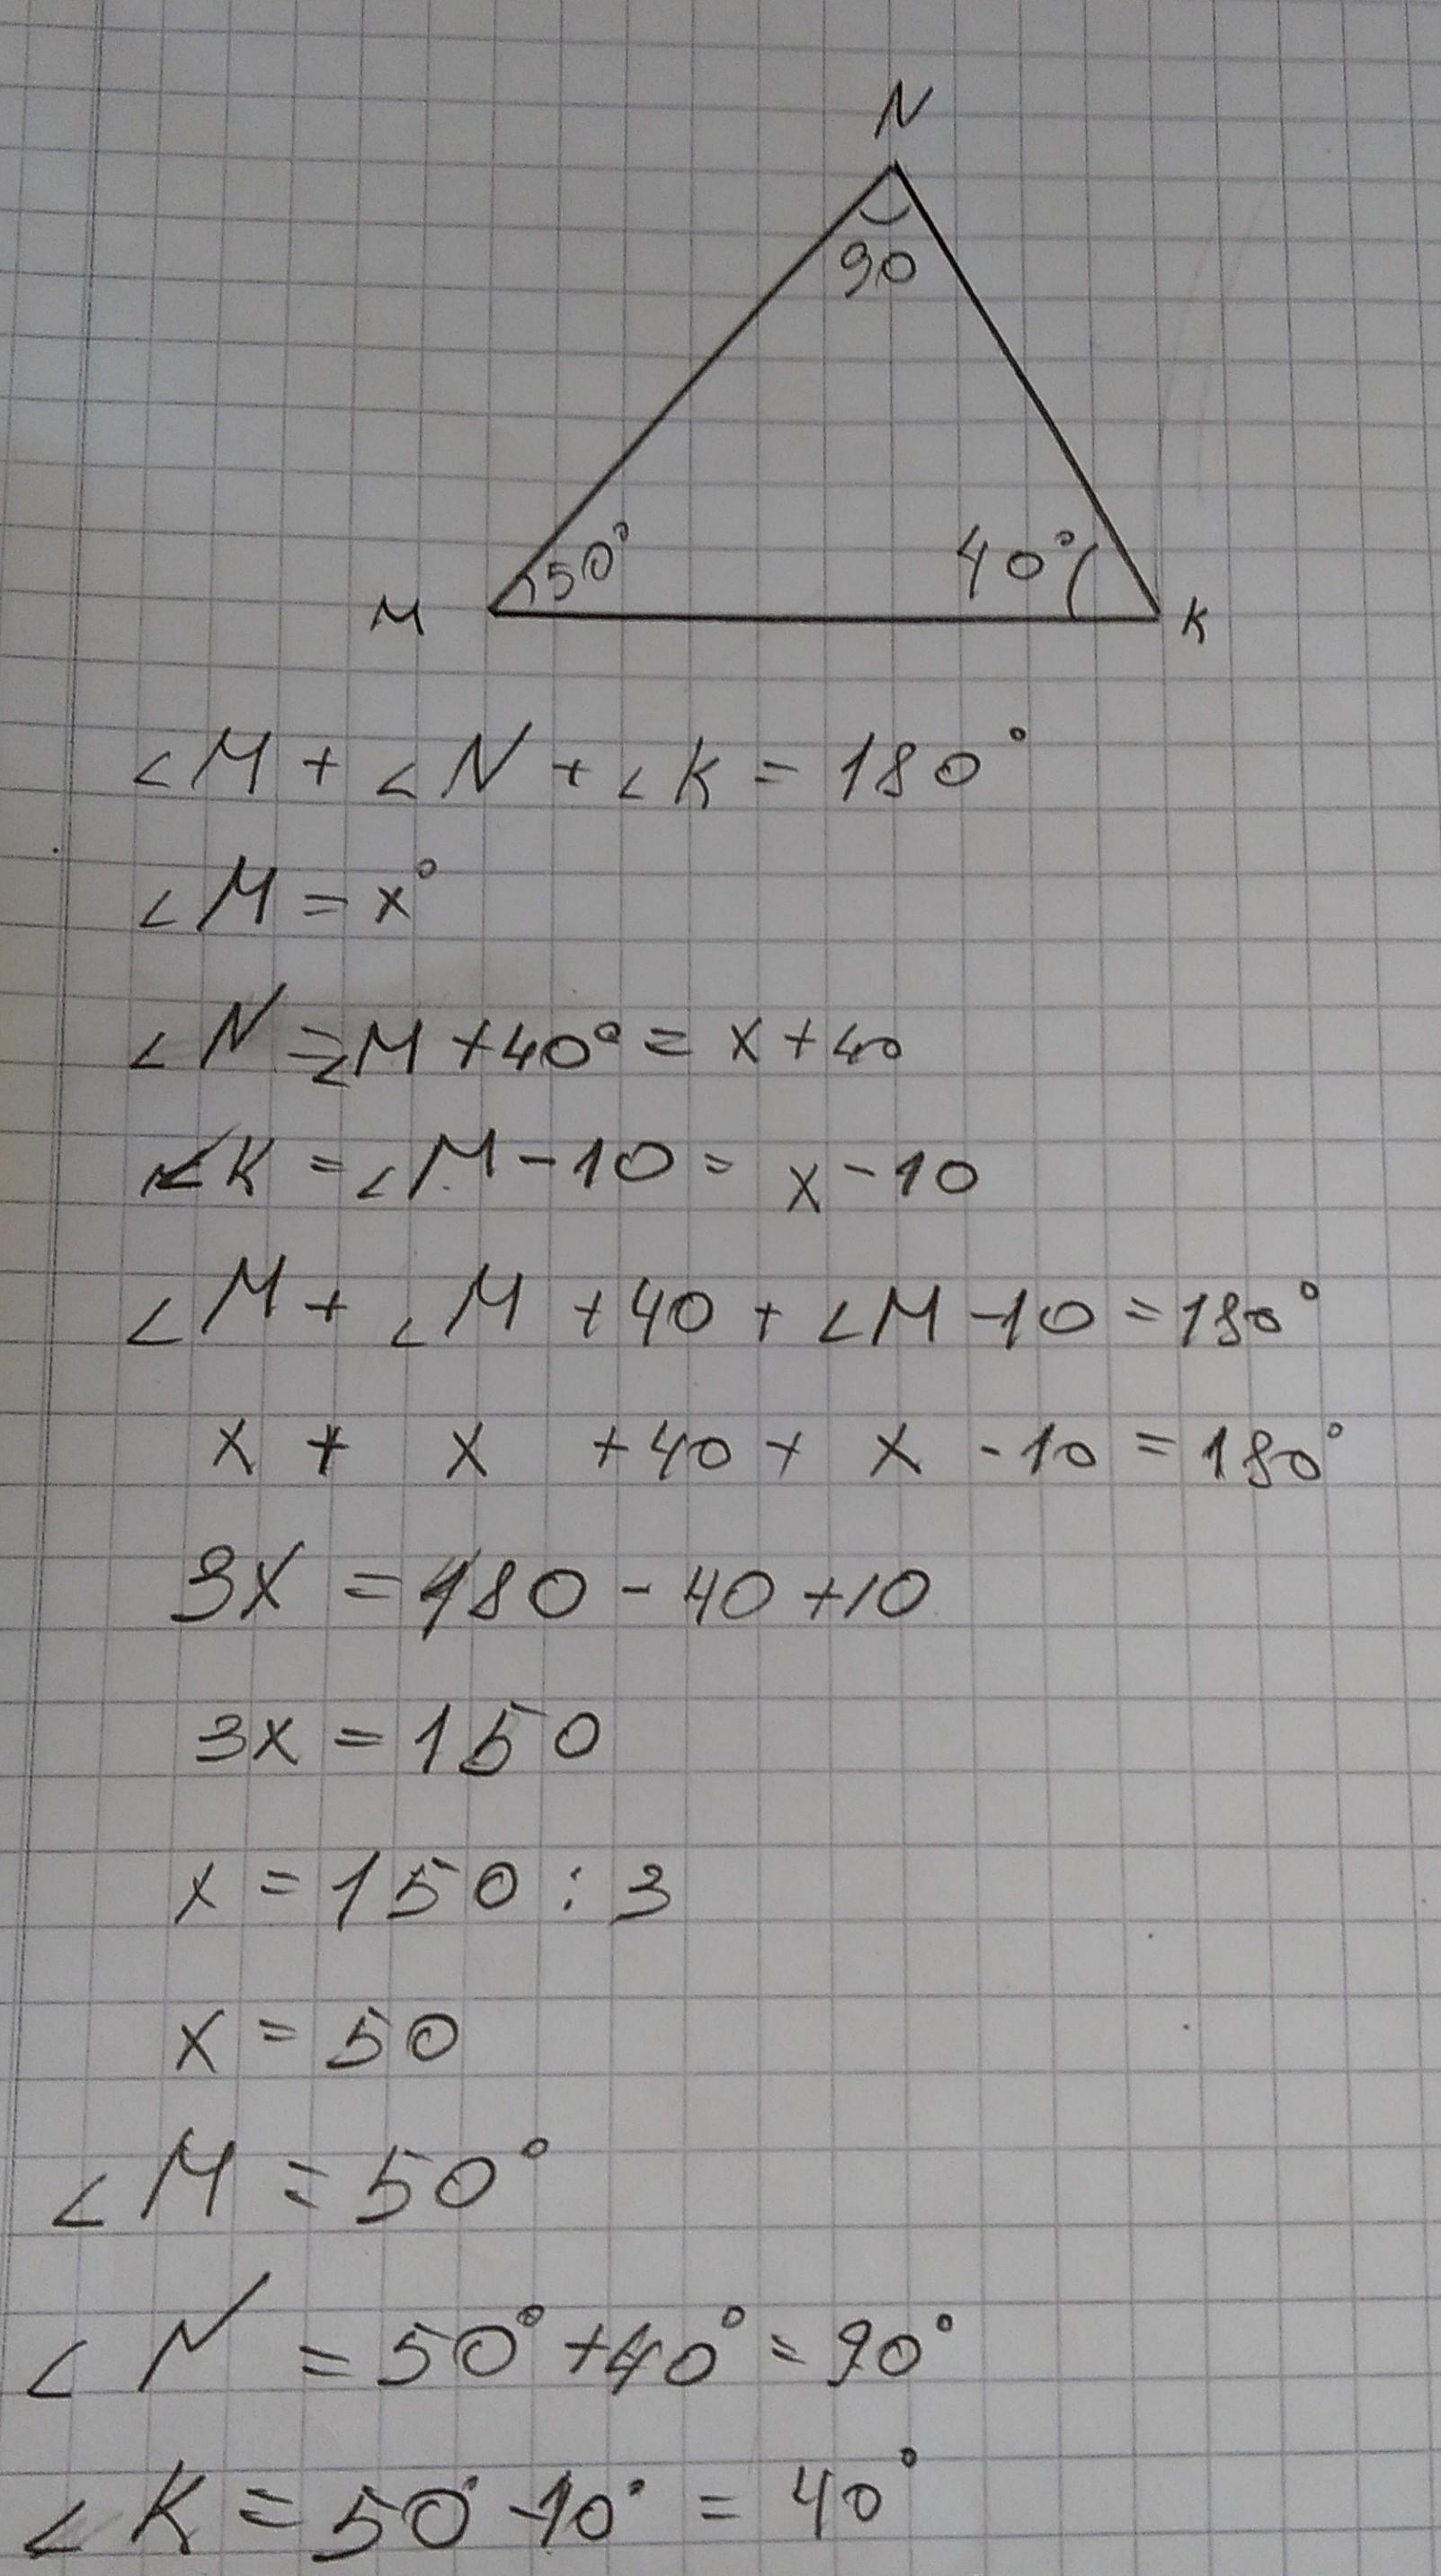 N
90
50°
40°
M
K
∠M + ∠N + ∠K = 180°
∠M = x°
∠N = ∠M + 40° = x + 40
∠K = ∠M - 10 = x - 10
∠M + ∠M + 40 + ∠M - 10 = 180°
x + x + 40 + x - 10 = 180°
3x = 180 - 40 + 10
3x = 150
x = 150 : 3
x = 50
∠M = 50°
∠N = 50° + 40° = 90°
∠K = 50° - 10° = 40°